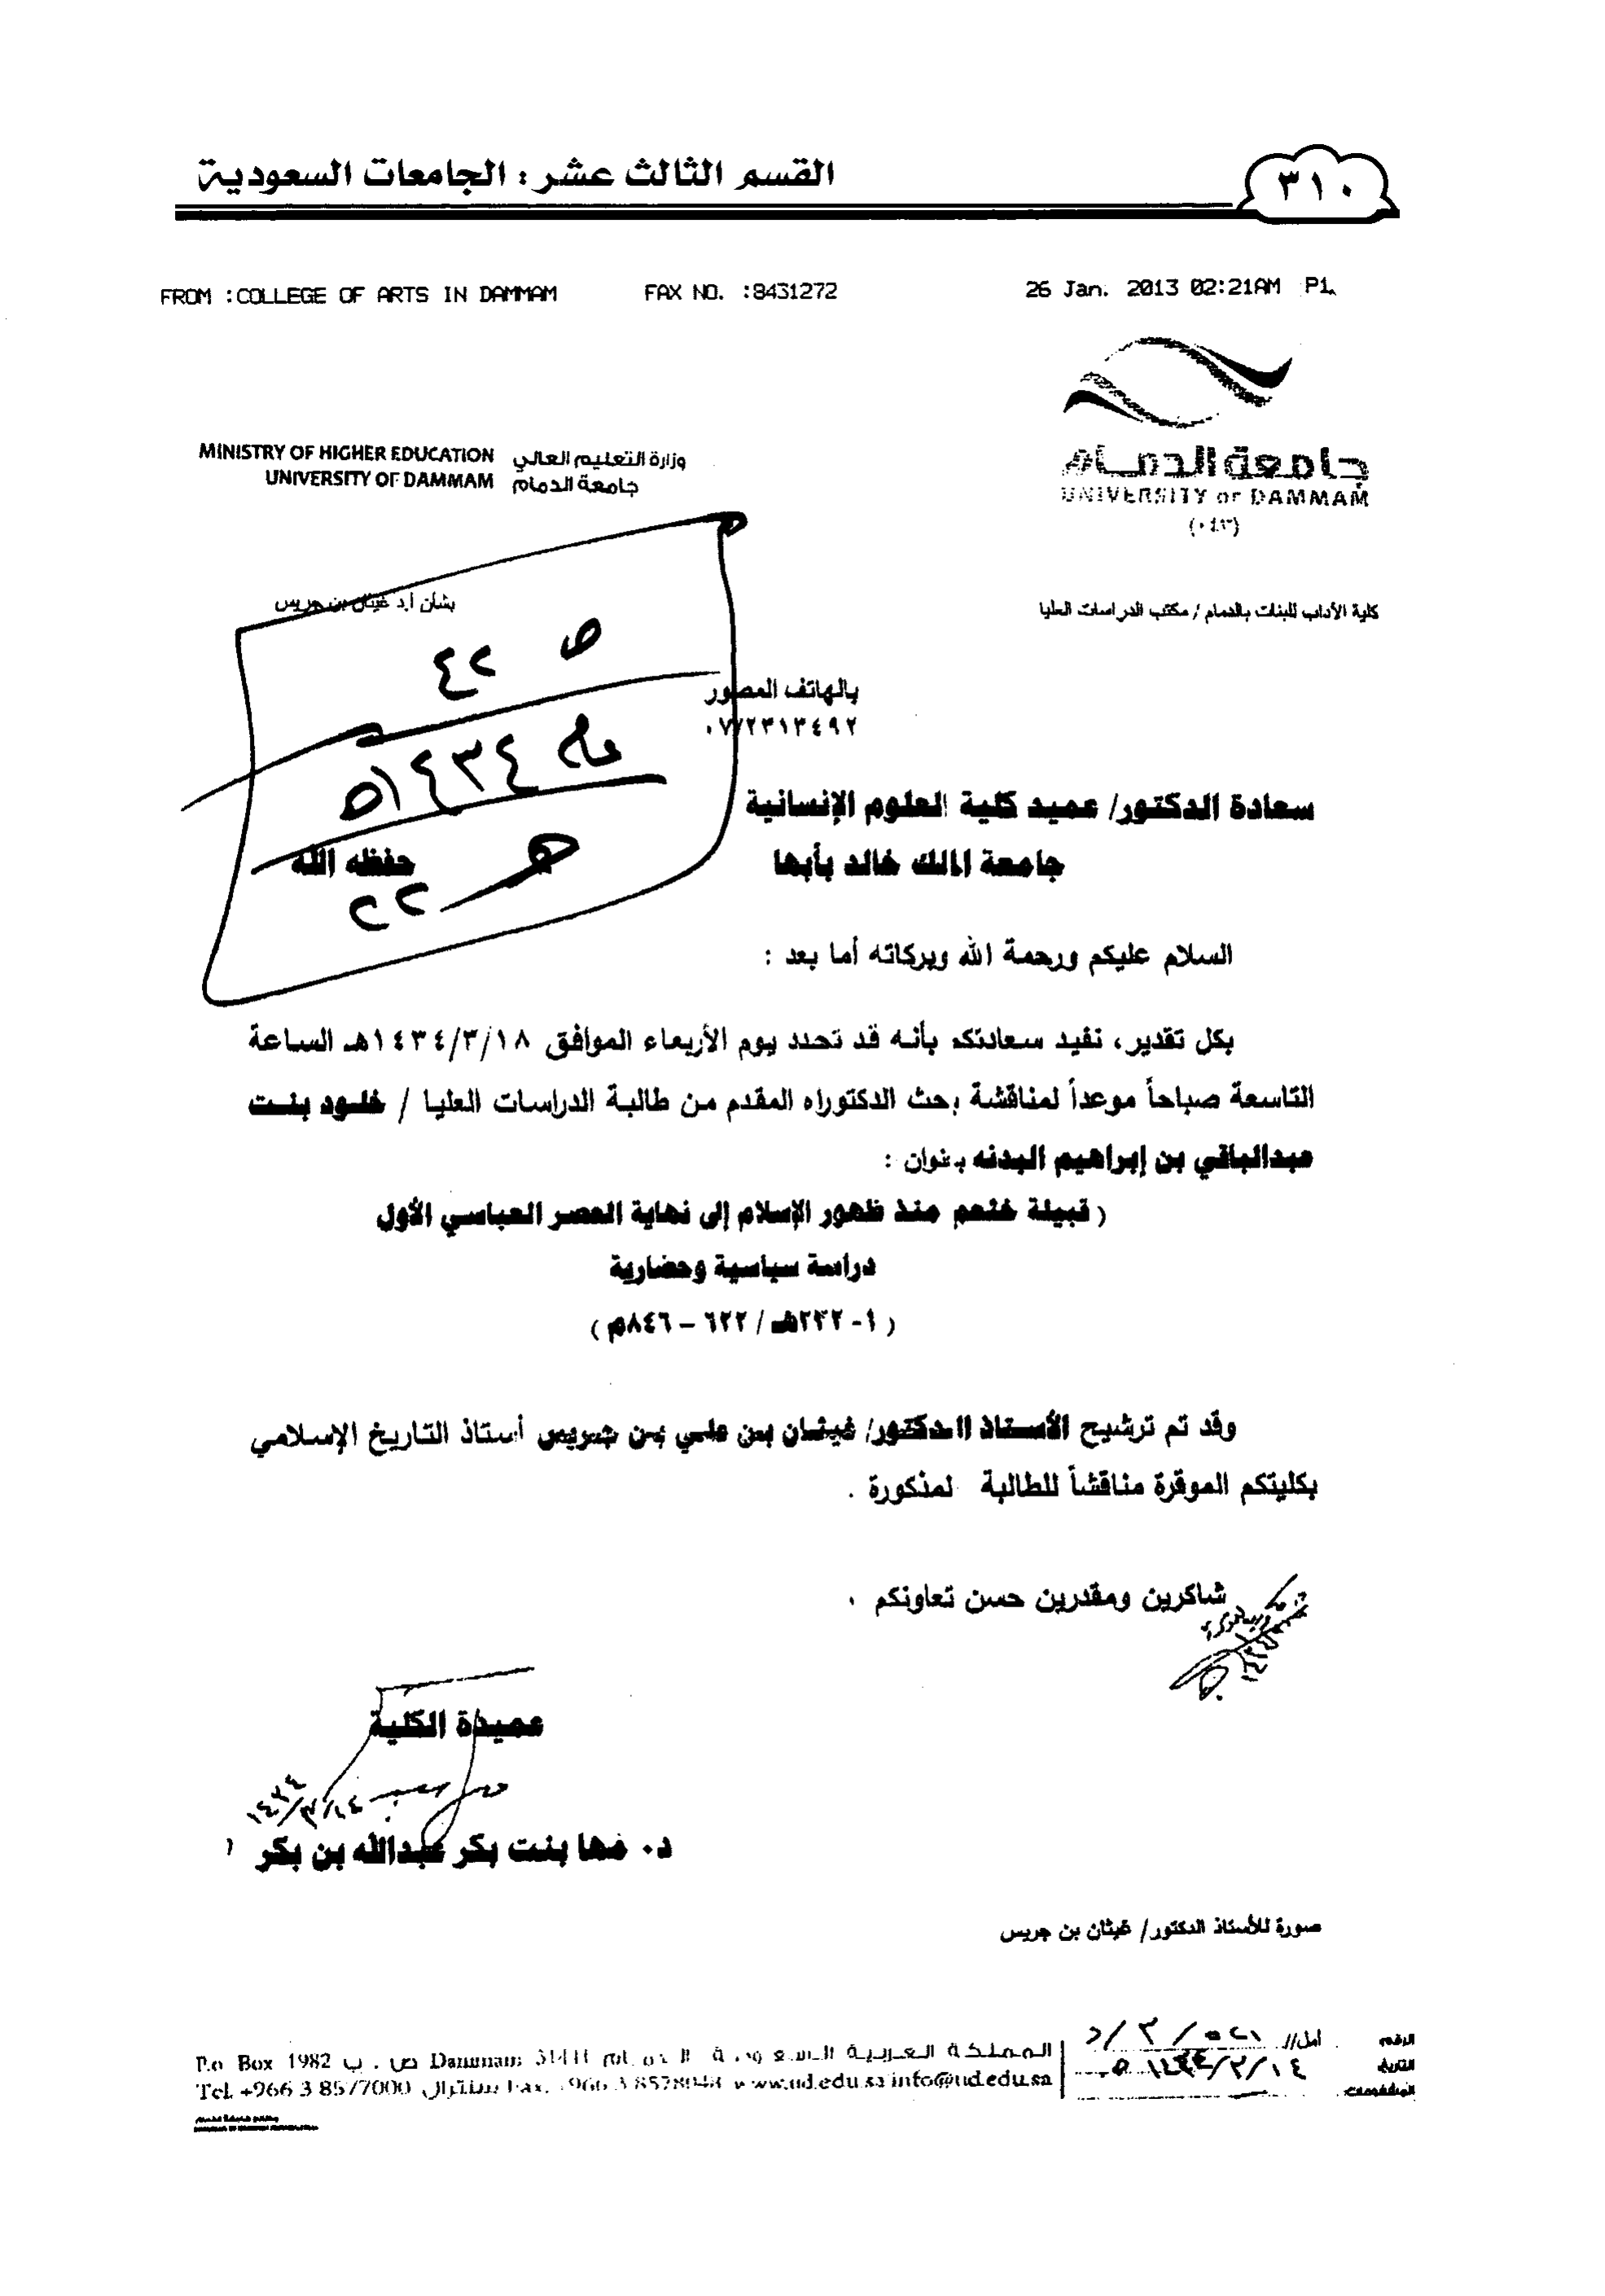 القسم الثالث عشر: الجامعات السعودية
٣١٠
FROM :COLLEGE OF ARTS IN DAMMAM FAX NO. :8431272 26 Jan. 2013 02:21AM P1
جامعة الدمام
UNIVERSITY OF DAMMAM
(٠٤٣)
MINISTRY OF HIGHER EDUCATION وزارة التعليم العالي
UNIVERSITY OF DAMMAM جامعة الدمام
كلية الآداب للبنات بالدمام / مكتب الدراسات العليا
بشأن أ.د غيثان بن جريس
ص ٤٢
عام ١٤٣٤هـ
حـ ٢٢
بالهاتف المصور
٠٧٢٣١٣٤٩٢
سعادة الدكتور/ عميد كلية العلوم الإنسانية
جامعة الملك خالد بأبها حفظه الله
السلام عليكم ورحمة الله وبركاته أما بعد :
بكل تقدير، نفيد سعادتكم بأنه قد تحدد يوم الأربعاء الموافق ١٤٣٤/٣/١٨هـ الساعة
التاسعة صباحاً موعداً لمناقشة بحث الدكتوراه المقدم من طالبة الدراسات العليا / خلود بنت
عبدالباقي بن إبراهيم البدنه بعنوان :
( قبيلة خثعم منذ ظهور الإسلام إلى نهاية العصر العباسي الأول
دراسة سياسية وحضارية
( ١- ٢٣٢هـ / ٦٢٢ – ٨٤٦م )
وقد تم ترشيح الأستاذ الدكتور/ غيثان بن علي بن جريس أستاذ التاريخ الإسلامي
بكليتكم الموقرة مناقشاً للطالبة لمذكورة .
شاكرين ومقدرين حسن تعاونكم .
عميدة الكلية
١٤٣٤/٣/١٤
د. مها بنت بكر عبدالله بن بكر
صورة للأستاذ الدكتور/ غيثان بن جريس
الرقم
التاريخ ١٤٣٤/٣/١٤هـ
المشفوعات
P.o Box 1982 ص . ب Dammam المملكة العربية السعودية
Tel. +966 3 8577000 سنترال Fax. +966 3 8578048 www.ud.edu.sa info@ud.edu.sa